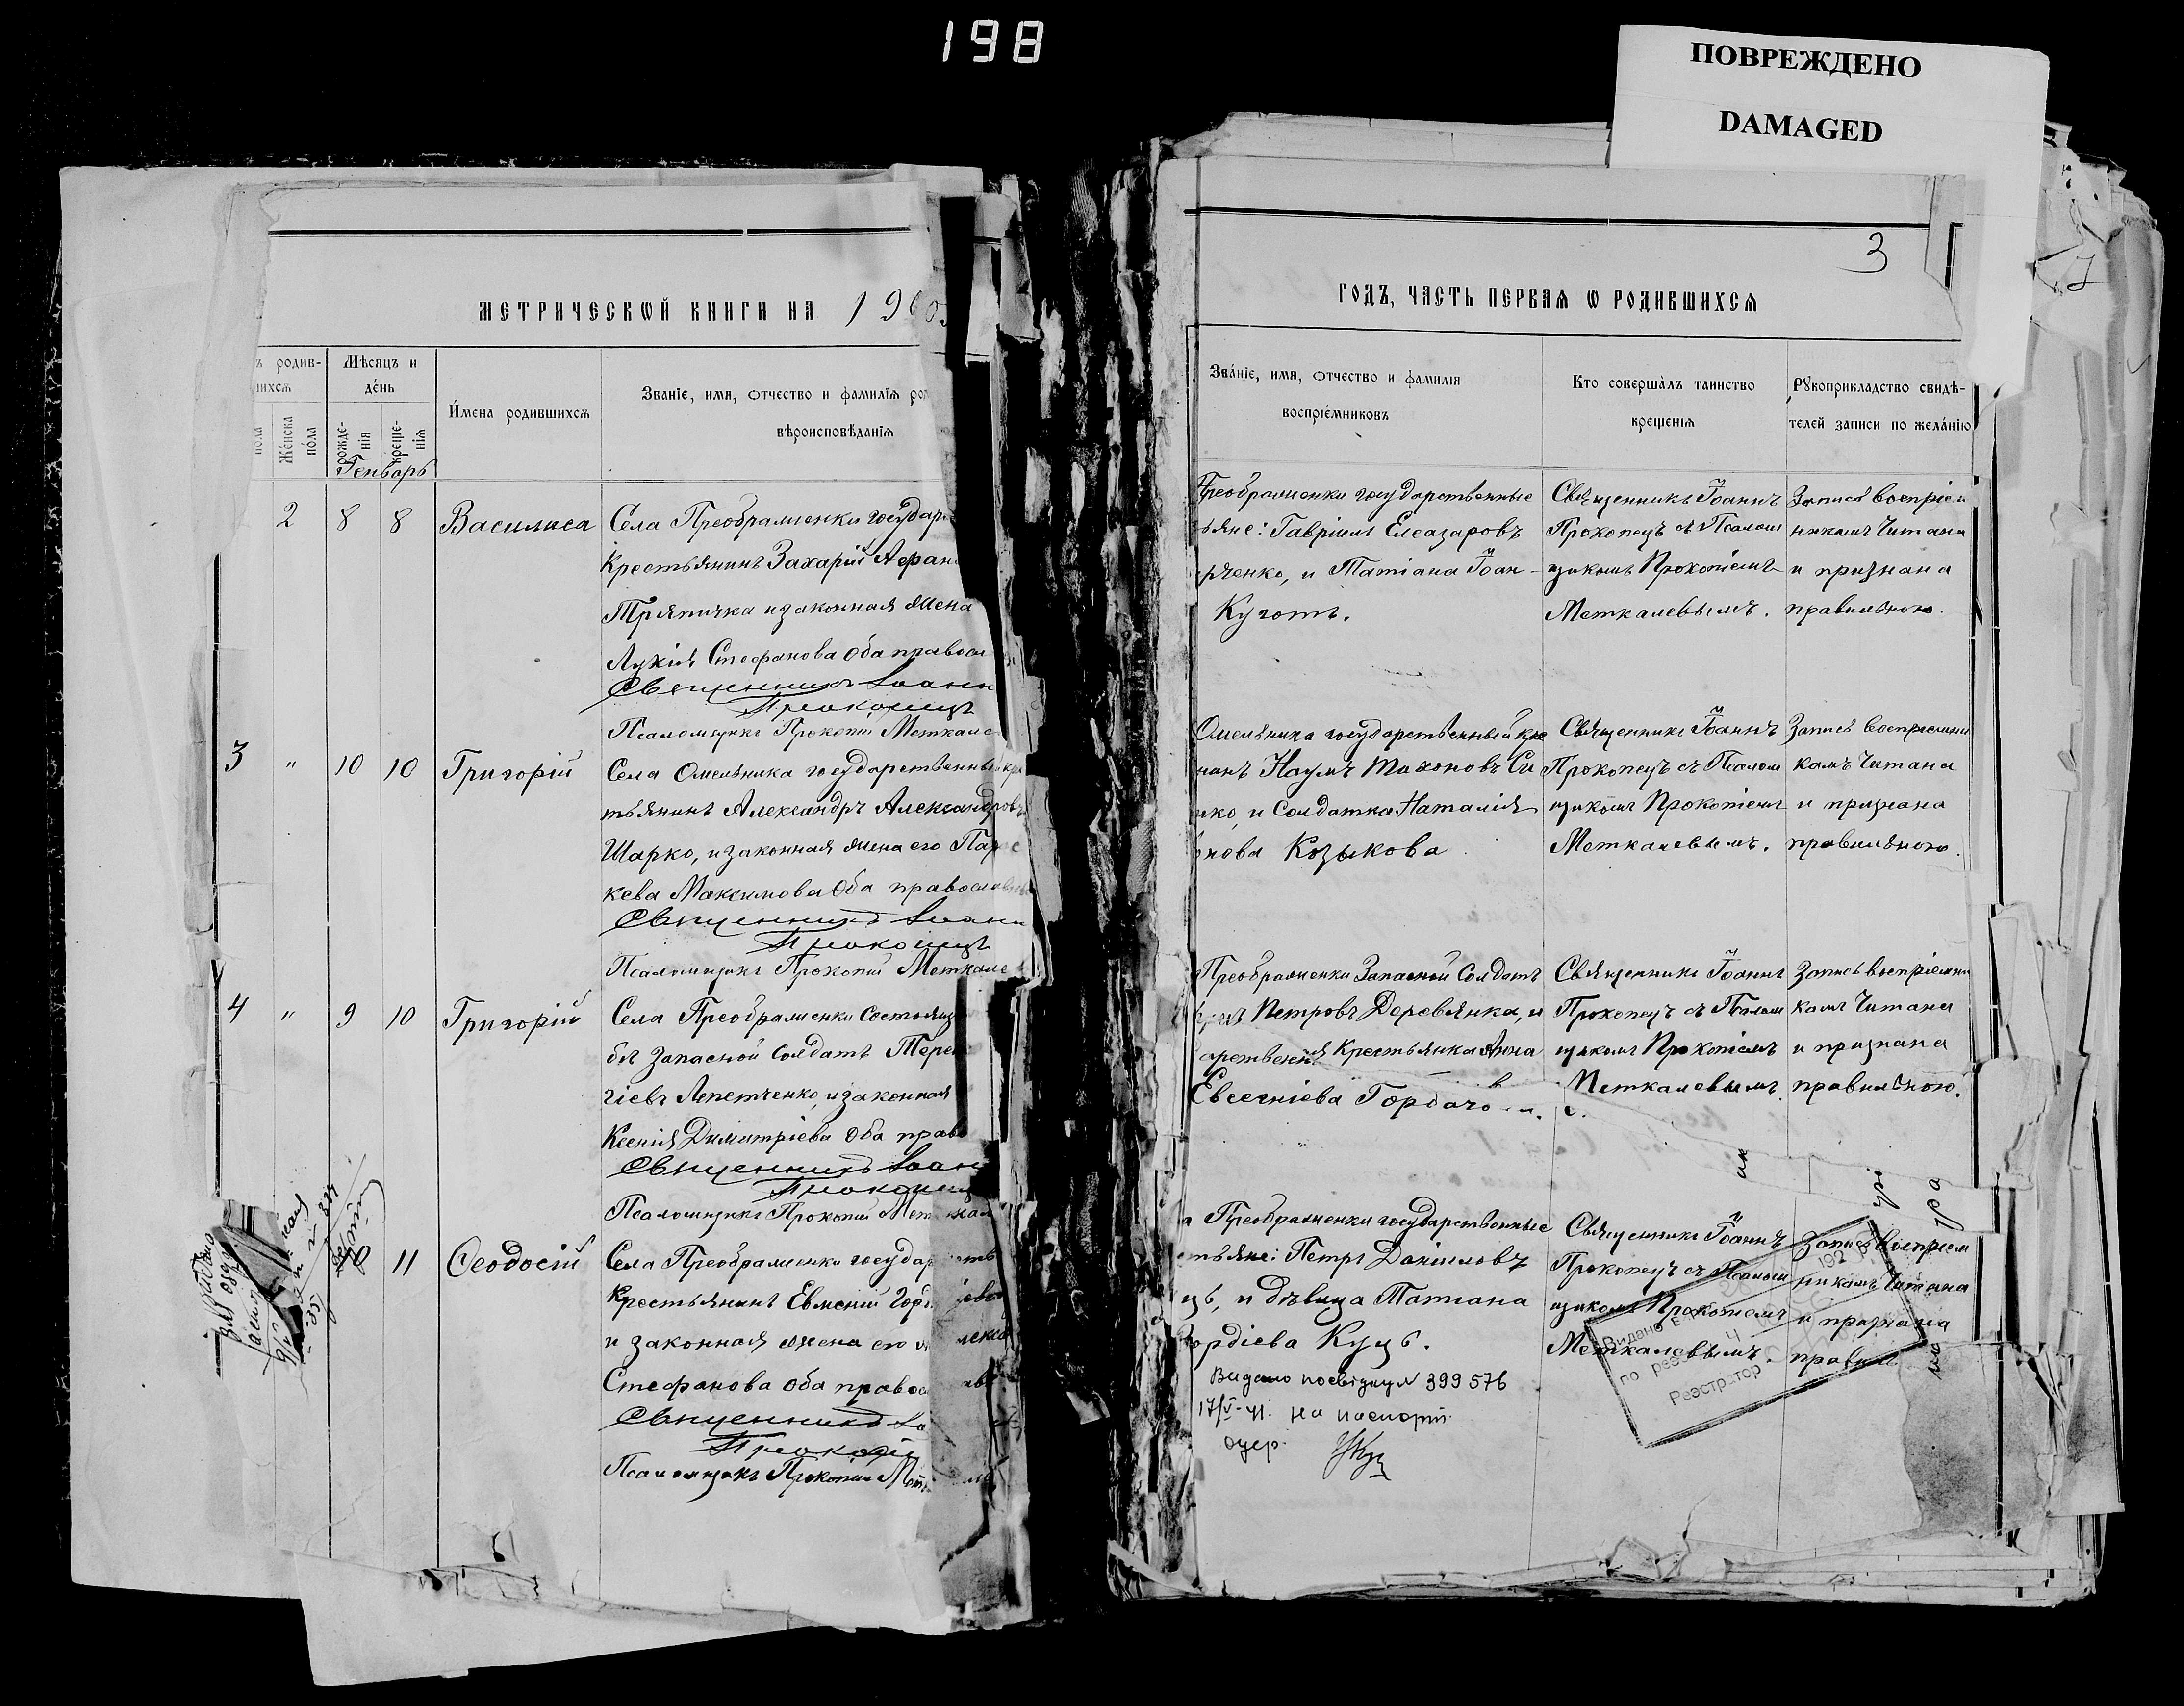 198
ПОВРЕЖДЕНО
DAMAGED
МЕТРИЧЕСКѠЙ КНИГИ НА 190
ъ родив-
шихсѧ
пола
Же́нска
по́ла
Мѣсѧцъ и
де́нь
рожде-
нїѧ
креще-
нїѧ
Генварь
И́мена родившихсѧ
Званїе, имѧ, ѻтчество и фамилїѧ ро
вѣроисповѣданїѧ
2 8 8 Василиса
Села Преображенки государ
Крестьянинъ Захарій Афан
Тряпичка и законная жена
Лукія Стефанова Оба правосл
Священникъ Іоанн
Прокопецъ
Псаломщикъ Прокопій Меткале
3 " 10 10 Григорій
Села Омельника государственный кре
тьянинъ Александръ Александровъ
Шарко, и законная жена его Пара
кева Максимова Оба православн
Священникъ Іоанн
Прокопецъ
Псаломщикъ Прокопій Меткале
4 " 9 10 Григорій
Села Преображенки Состоящ
въ запасной Солдатъ Терен
гіевъ Лепетченко, и законная
Ксенія Димитріева Оба право
Священникъ Іоан
Прокопец
Псаломщикъ Прокопій Меткал
11 Ѳеодосій
Села Преображенки государ
Крестьянинъ Евменій Горд
и законная жена его
Стефанова Оба правос
Священникъ
Псаломщикъ Прокопій Мет
3
ГОДЪ, ЧАСТЬ ПЕРВАѦ Ѡ РОДИВШИХСѦ
Зва́нїе, имѧ, ѻтчество и фамилїѧ
воспрїе́мниковъ
Кто соверша́лъ таинство
крещенїѧ
Рꙋкоприкладство свидѣ-
телей записи по жела́нїю
Преображенки государственные
ьяне: Гавріилъ Елеазаровъ
рченко, и Татіана Іоан-
Куготь.
Священникъ Іоаннъ
Прокопецъ съ Псалом
щикомъ Прокопіемъ
Меткалевымъ.
Запись воспріем
никамъ читана
и признана
правильною.
Омельника государственный кре
нинъ Наумъ Тихоновъ Си
ко, и Солдатка Наталія
нова Козыкова
Священникъ Іоаннъ
Прокопецъ съ Псалом
щикомъ Прокопіемъ
Меткалевымъ.
Запись воспріемни
камъ читана
и признана
правильною.
Преображенки Запасной Солдатъ
Петровъ Деревянка, и
арственная Крестьянка Анна
Евсегніева
Священникъ Іоаннъ
Прокопецъ съ Псалом
щикомъ Прокопіемъ
Меткалевымъ.
Запись воспріемни
камъ читана
и признана
правильною.
Преображенки государственные
стьяне: Петръ Даніиловъ
цъ, и дѣвица Татіана
ордіева Куцъ.
Священникъ Іоаннъ
Прокопецъ съ Псалом
щикомъ Прокопіемъ
Меткалевымъ.
Запись воспріем
никамъ читана
и признана
правил
Видано посвідку № 399576
17/V-41. на паспорт.
Видано
192
по
Реєстратор